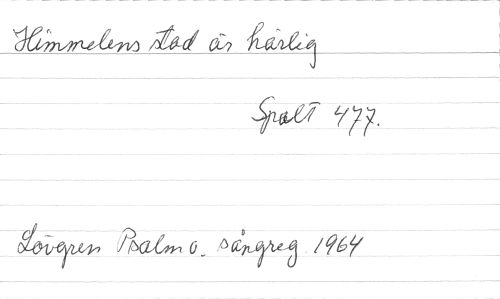 Himmelens stad är härlig
Spalt 477.
Lövgren Psalm o. sångreg. 1964